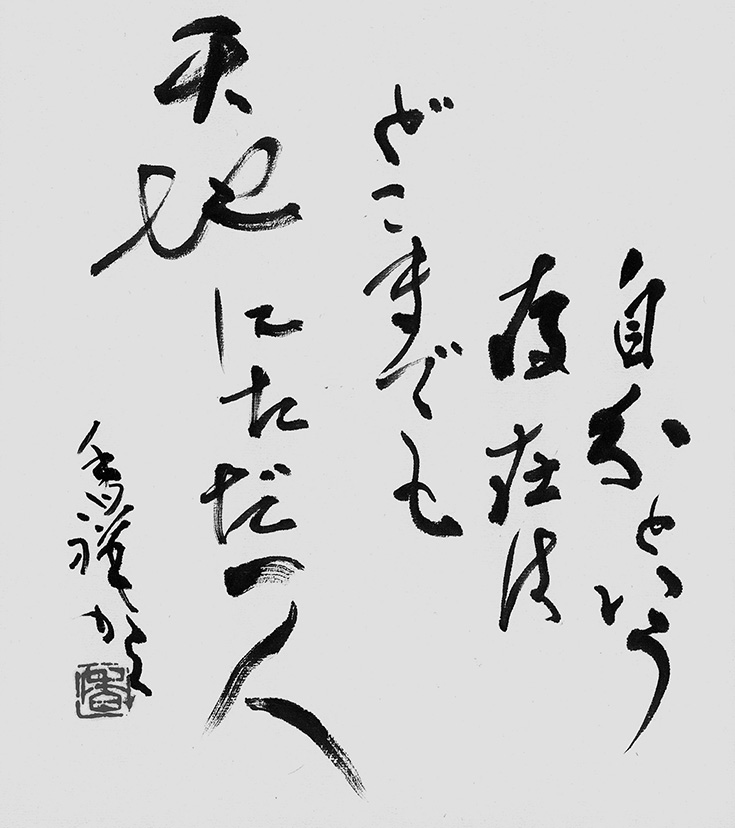 自分という
存在は
どこまでも
天地に
ただ一人